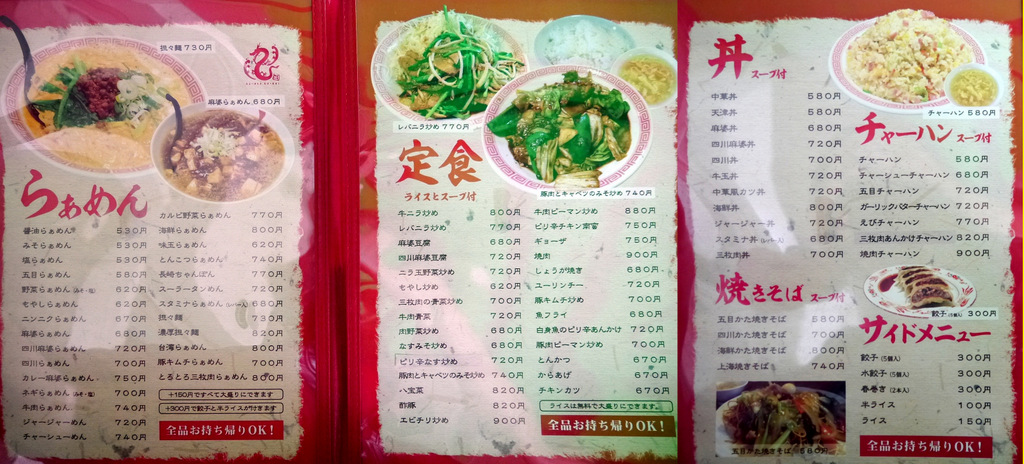 担々麺 730円
麻婆らぁめん 680円
らぁめん
醤油らぁめん 530円
みそらぁめん 530円
塩らぁめん 530円
五目らぁめん 580円
野菜らぁめん(みそ・塩) 620円
もやしらぁめん 620円
ニンニクらぁめん 670円
麻婆らぁめん 680円
四川麻婆らぁめん 720円
四川らぁめん 700円
カレー麻婆らぁめん 750円
ネギらぁめん(みそ・塩) 700円
牛肉らぁめん 740円
ジャージャーめん 720円
チャーシューめん 740円
カルビ野菜らぁめん 770円
海鮮らぁめん 800円
味玉らぁめん 620円
とんこつらぁめん 740円
長崎ちゃんぽん 770円
スーラータンめん 720円
スタミナらぁめん(レバー入) 680円
担々麺 730円
濃厚担々麺 820円
台湾らぁめん 800円
豚キムチらぁめん 700円
とろとろ三枚肉らぁめん 800円
+150円ですべて大盛りにできます
+300円で餃子と半ライスが付きます
全品お持ち帰りOK!
レバニラ炒め 770円
豚肉とキャベツのみそ炒め 740円
定食
ライスとスープ付
牛ニラ炒め 800円
レバニラ炒め 770円
麻婆豆腐 680円
四川麻婆豆腐 720円
ニラ玉野菜炒め 720円
もやし炒め 620円
三枚肉の青菜炒め 700円
牛肉青菜 720円
肉野菜炒め 680円
なすみそ炒め 680円
ピリ辛なす炒め 720円
豚肉とキャベツのみそ炒め 740円
八宝菜 820円
酢豚 820円
エビチリ炒め 900円
牛肉ピーマン炒め 880円
ピリ辛チキン南蛮 750円
ギョーザ 750円
焼肉 900円
しょうが焼き 680円
ユーリンチー 720円
豚キムチ炒め 700円
魚フライ 680円
白身魚のピリ辛あんかけ 720円
豚肉ピーマン炒め 700円
とんかつ 670円
からあげ 670円
チキンカツ 670円
ライスは無料で大盛りにできます。
全品お持ち帰りOK!
丼 スープ付
中華丼 580円
天津丼 580円
麻婆丼 680円
四川麻婆丼 720円
四川丼 700円
牛玉丼 720円
中華風カツ丼 720円
海鮮丼 800円
ジャージャー丼 720円
スタミナ丼(レバー入) 680円
三枚肉丼 700円
焼きそば スープ付
五目かた焼きそば 580円
四川かた焼きそば 700円
海鮮かた焼きそば 800円
上海焼きそば 740円
五目かた焼きそば 580円
チャーハン 580円
チャーハン スープ付
チャーハン 580円
チャーシューチャーハン 680円
五目チャーハン 720円
ガーリックバターチャーハン 720円
えびチャーハン 770円
三枚肉あんかけチャーハン 820円
焼肉チャーハン 900円
餃子(5個入) 300円
サイドメニュー
餃子(5個入) 300円
水餃子(5個入) 300円
春巻き(2本入) 300円
半ライス 100円
ライス 150円
全品お持ち帰りOK!